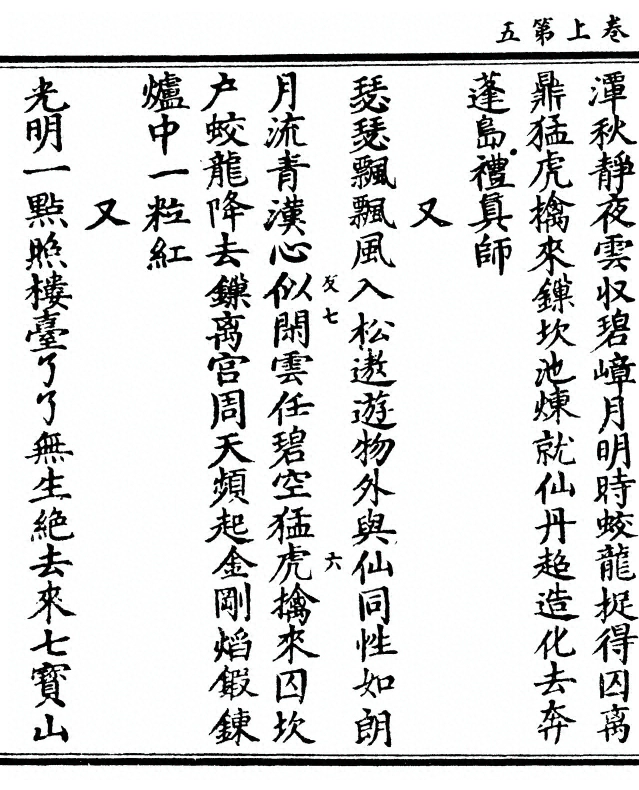 卷上第五
潭秋靜夜雲収碧嶂月明時蛟龍捉得囚离
鼎猛虎擒來鏁坎池煉就仙丹超造化去奔
蓬島禮眞師
又
瑟瑟飄飄風入松遨遊物外與仙同性如朗
友七 六
月流青漢心似閑雲任碧空猛虎擒來囚坎
户蛟龍降去鏁离宫周天頻起金剛熖鍜鍊
爐中一粒紅
又
光明一點照樓臺了了無生絶去來七寶山